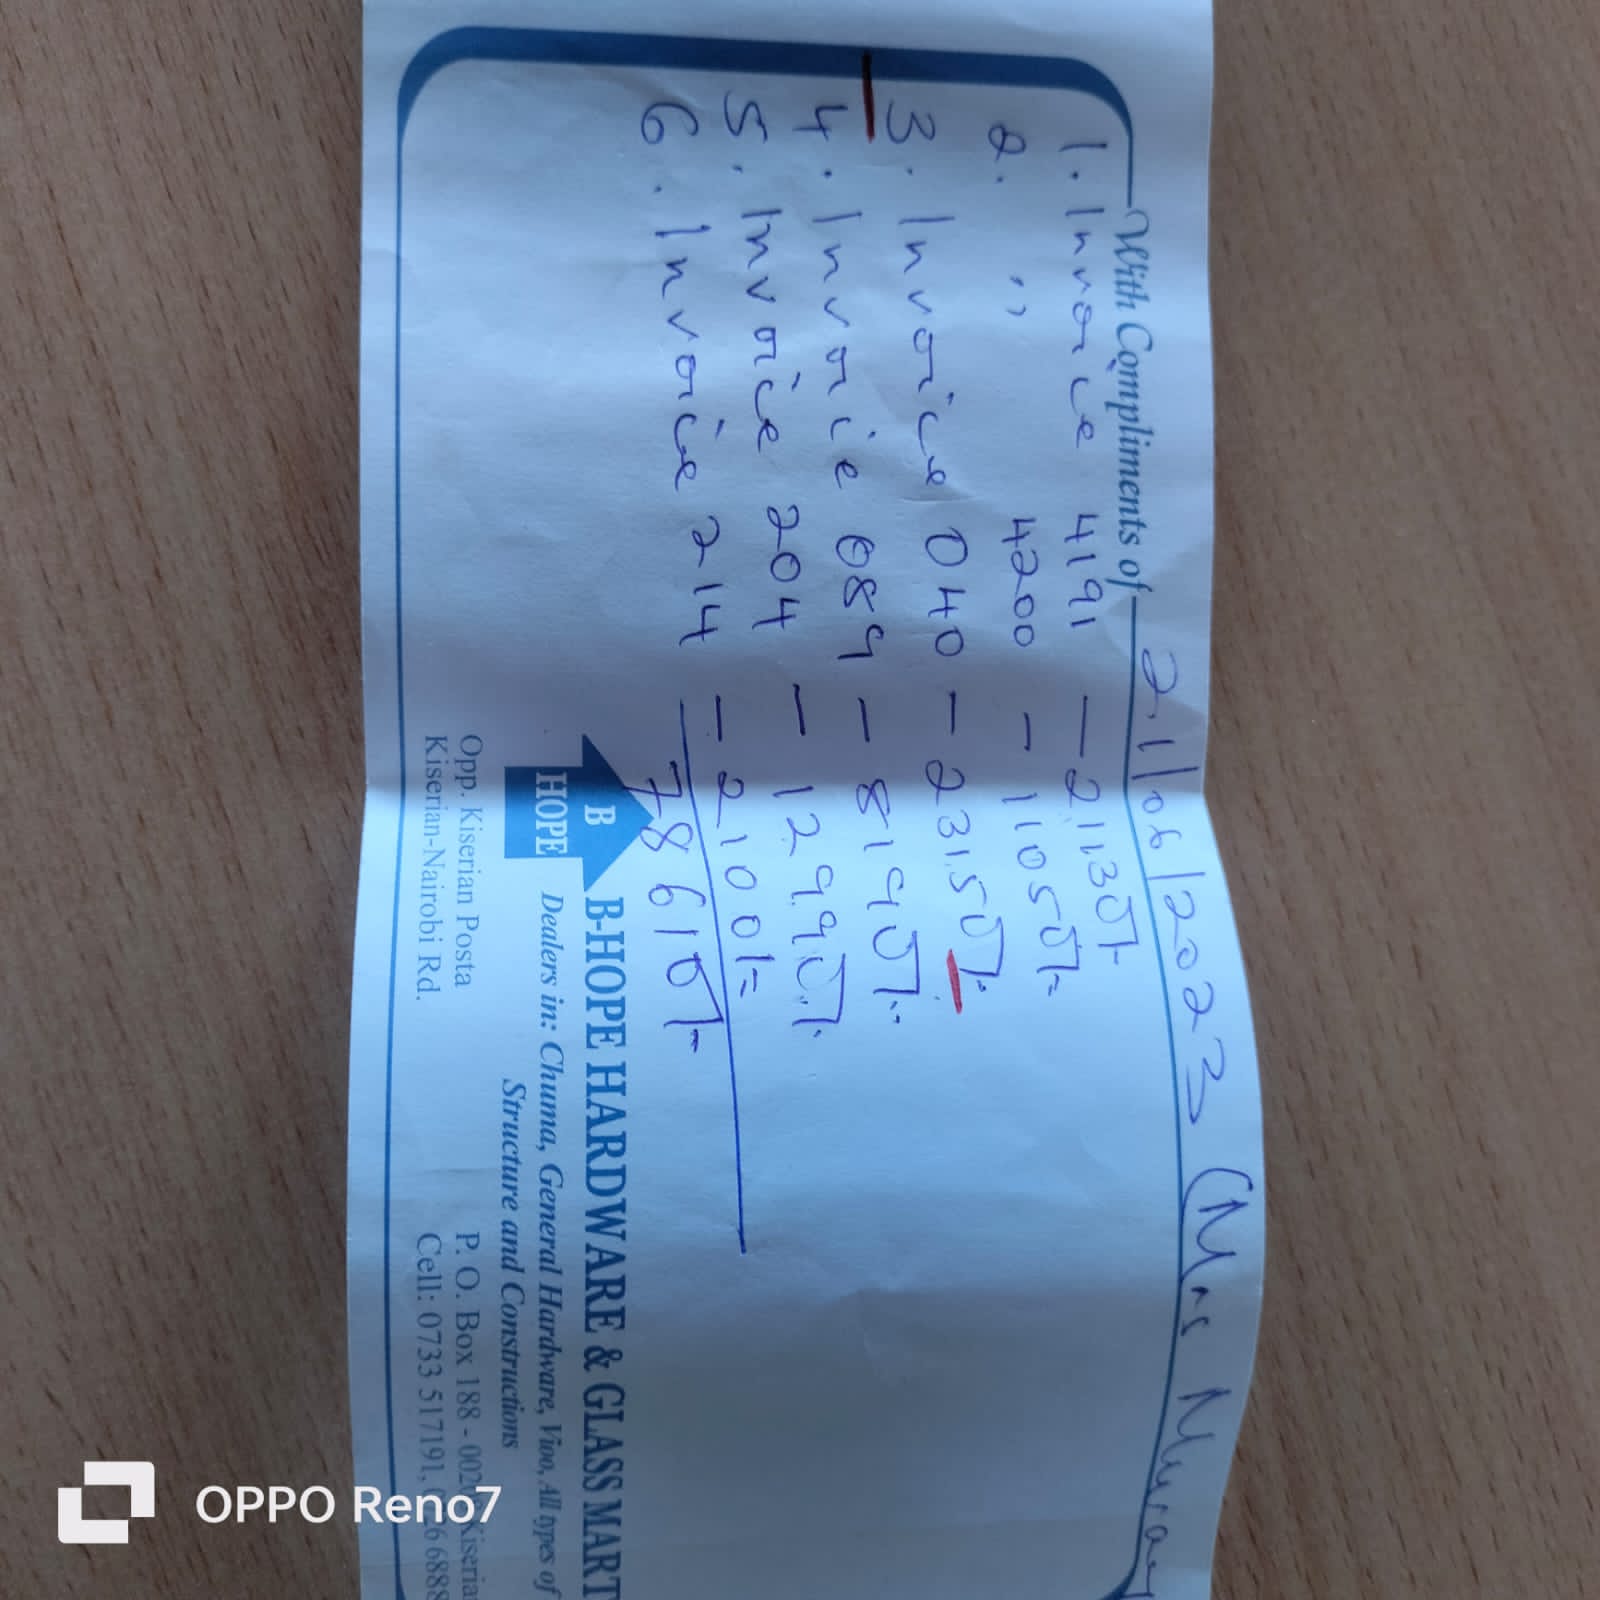 With Compliments of 21/06/2023 (Mrs
1. Invoice 4191 — 21,130/-
2. ,, 4200 - 11050/=
3. Invoice 040 - 23150/-
4. Invoice 089 - 8190/-
5. Invoice 204 - 12990/-
6. Invoice 214 - 2100/=
78610/=
B HOPE
B-HOPE HARDWARE & GLASS MART
Dealers in: Chuma, General Hardware, Vioo, All types of
Structure and Constructions
Opp. Kiserian Posta
P. O. Box 188 -
Kiserian-Nairobi Rd.
Cell: 0733 517191,
OPPO Reno7